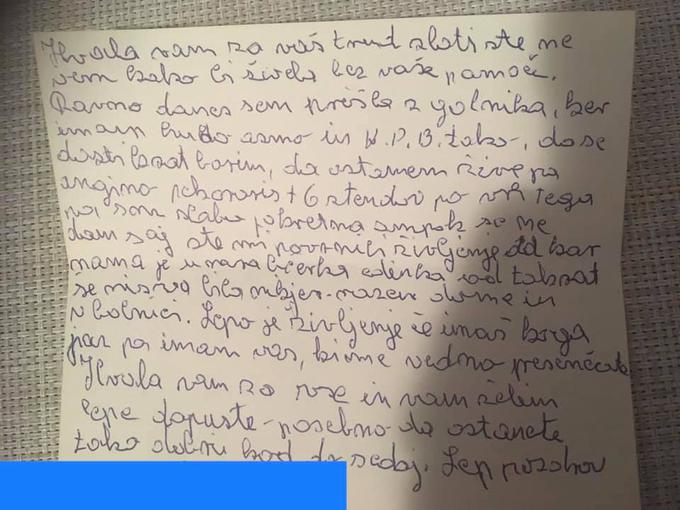 Hvala vam za vaš trud zlati ste ne
vem kako bi živela brez vaše pomoči.
Ravno danes sem prišla z golnika, ker
imam hudo asmo in K.P.B. tako, da se
dostikrat borim, da ostanem živa pa
angino pektoris + 6 stendov po vrh tega
pa sem slabo pokretna ampak se ne
dam saj ste mi povrnili življenje od kar
mama je umrla hčerka edinka od takrat
se nisva bila nikjer razen doma in
v bolnici. Lepo je življenje če imaš koga
jaz pa imam vas, ki me vedno presenečate
Hvala vam za vse in vam želim
lepe dopuste - posebno da ostanete
tako dobri kod do sedaj. Lep pozdrav